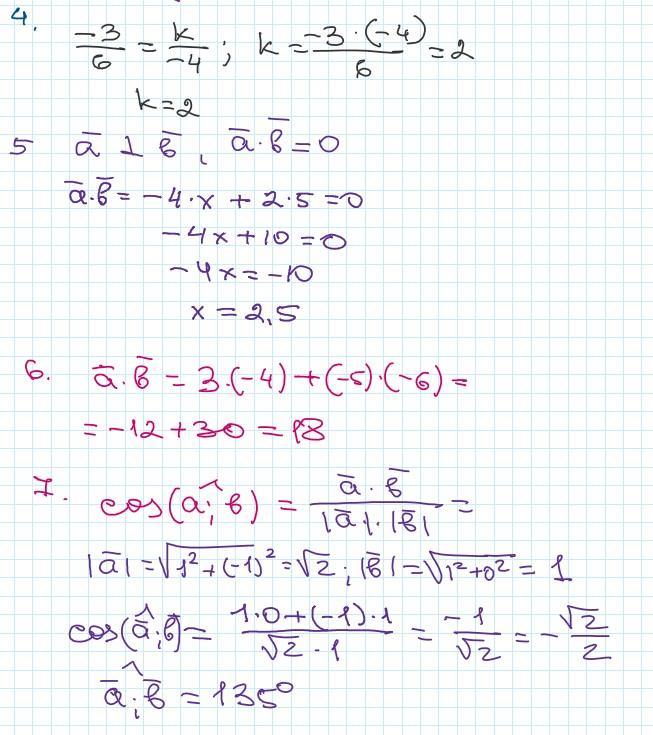 4.
-3/6 = k/-4 ; k = -3·(-4)/6 = 2
k = 2
5 a̅ ⊥ b̅, a̅·b̅ = 0
a̅·b̅ = -4·x + 2·5 = 0
-4x + 10 = 0
-4x = -10
x = 2,5
6. a̅·b̅ = 3·(-4) + (-5)·(-6) =
= -12 + 30 = 18
7. cos(a^; b) = a̅·b̅/|a̅|·|b̅| =
|a̅| = √1² + (-1)² = √2 ; |b̅| = √1² + 0² = 1
cos(a̅^; b̅) = 1·0 + (-1)·1/√2·1 = -1/√2 = -√2/2
a̅^; b̅ = 135°